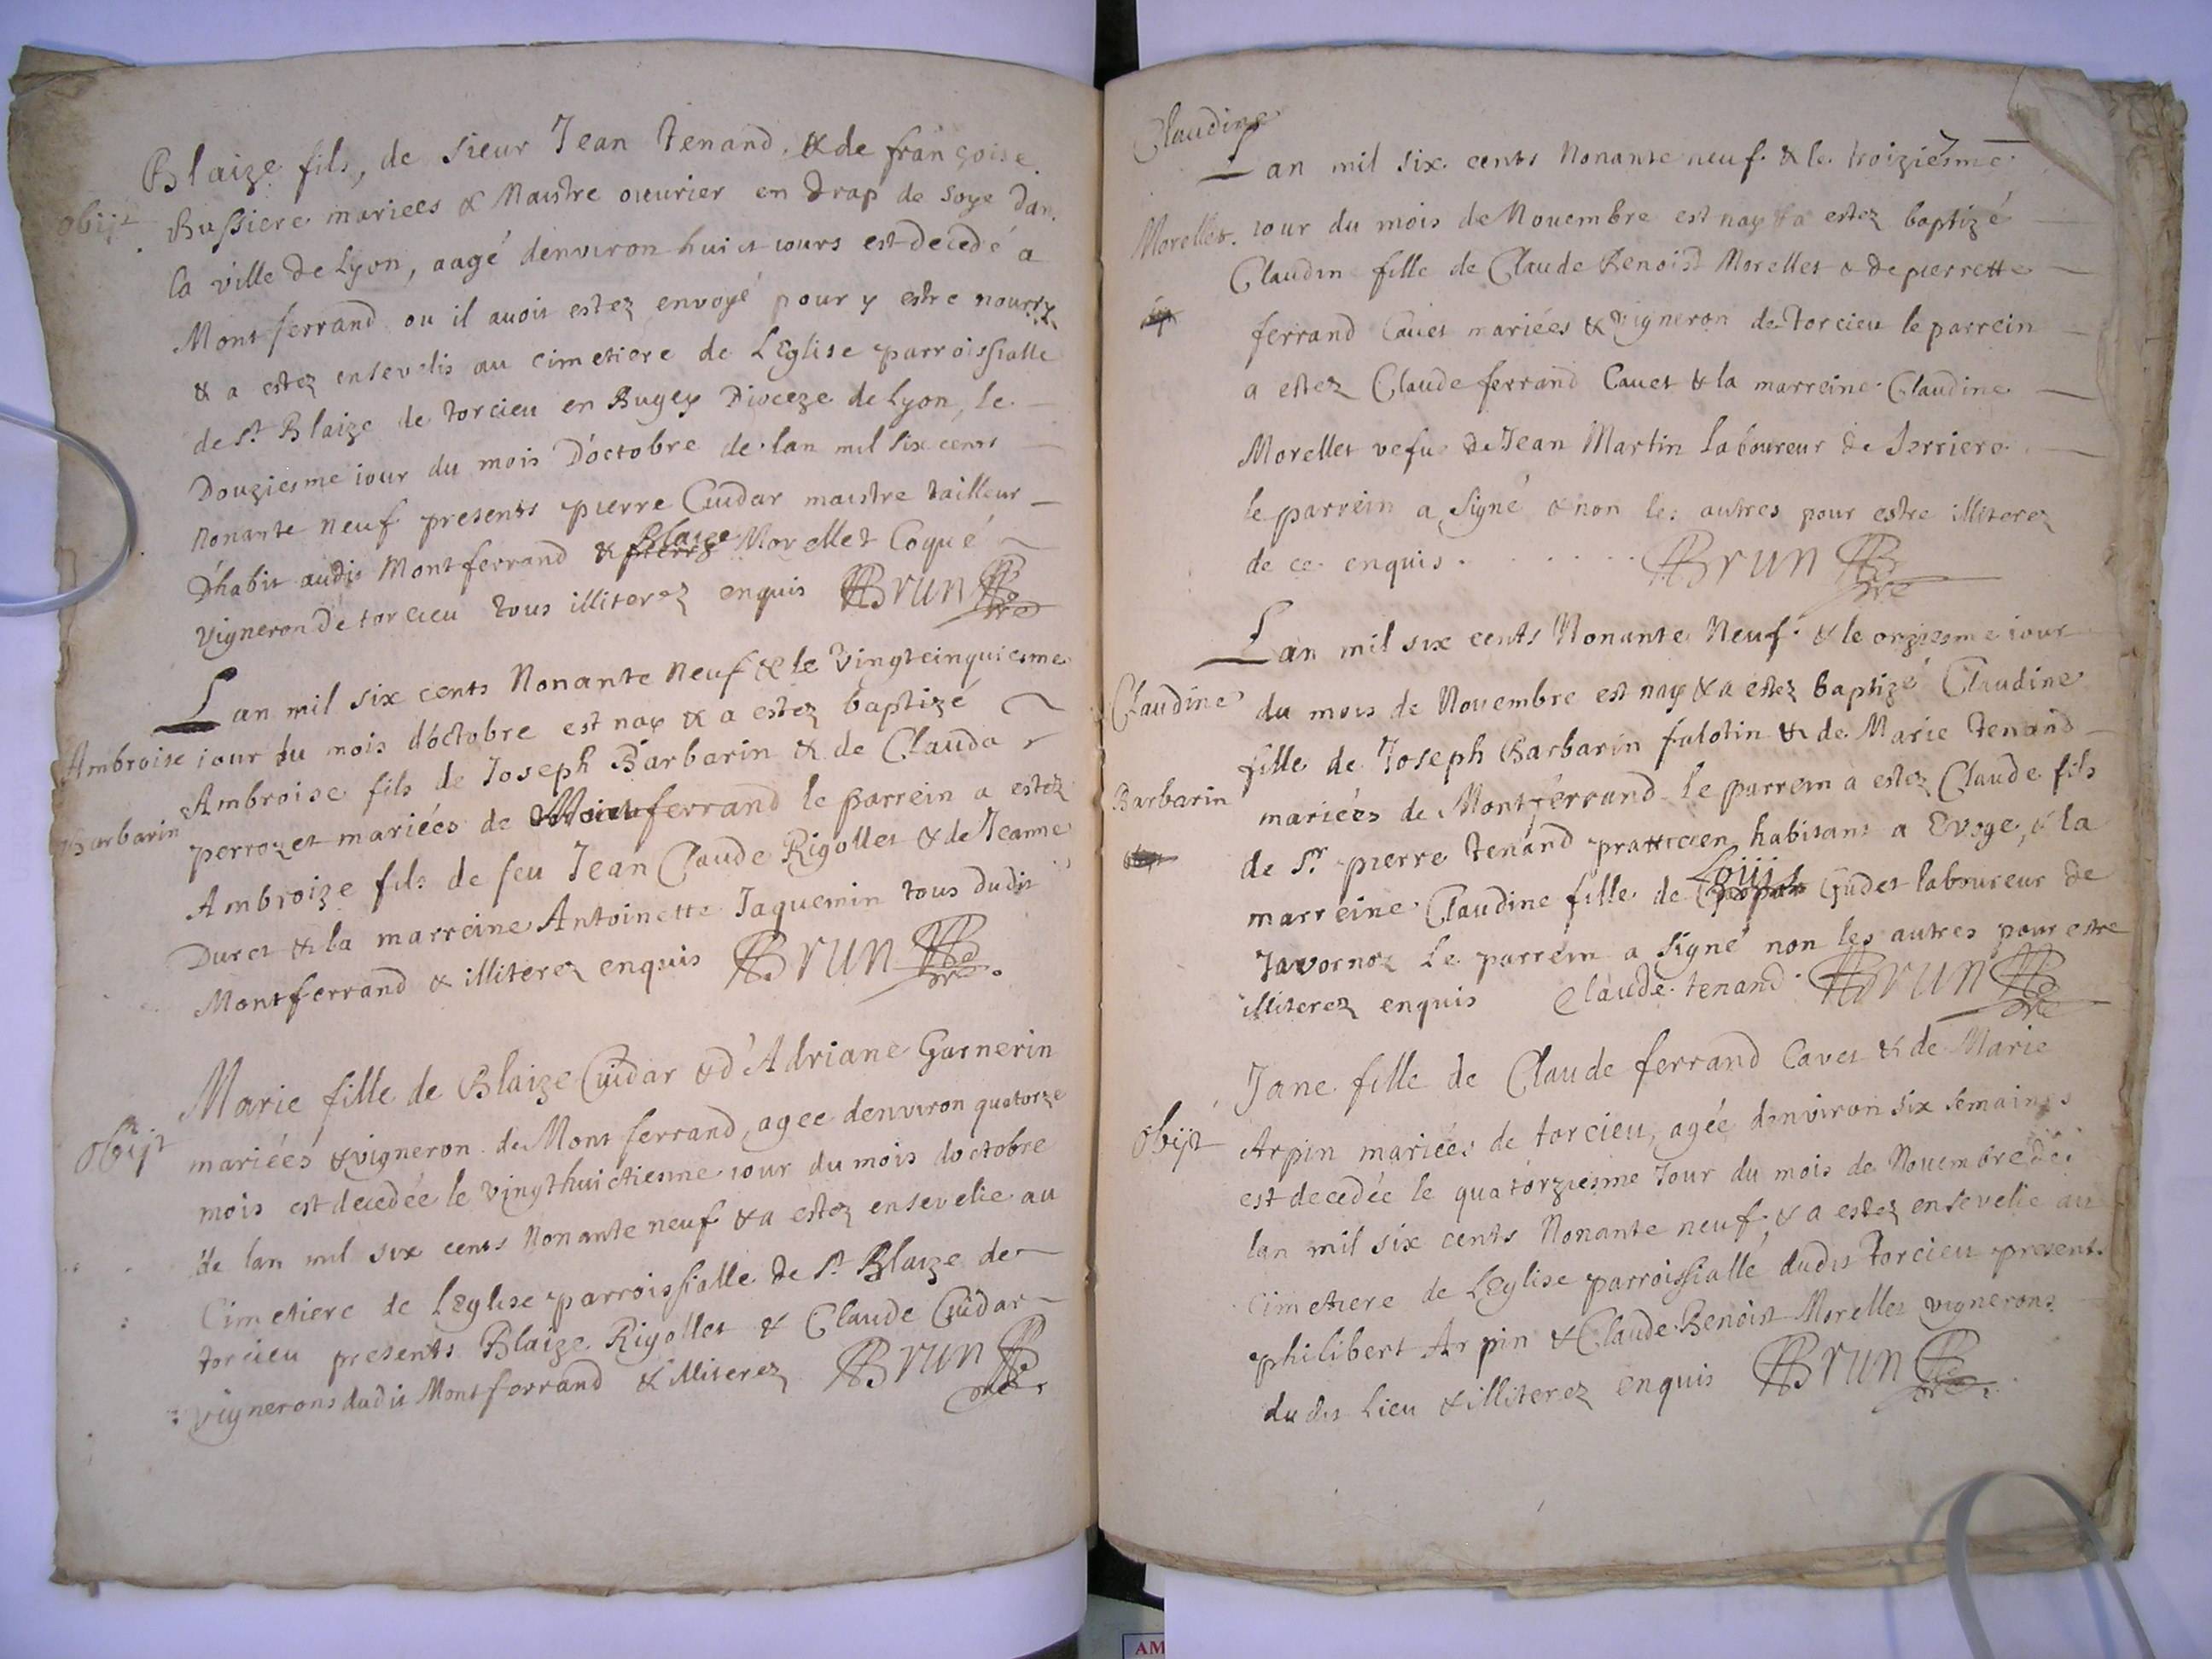 Blaize fils, de sieur Jean Tenand & de françoise
obijt
Bussiere mariees & Maistre ouurier en drap de soye dan
la ville de Lyon, aagé denviron huict iours est decedé a
Montferrand ou il auoit estez envoyé pour y estre nourry
& a estez ensevelis au cimetiere de LEglise parroissialle
de St Blaize de torcieu en Bugey Dioceze de Lyon, le
Douziesme iour du mois D'octobre de lan mil six cents
Nonante neuf presents pierre Cuidar maistre tailleur
Dhabit audit Montferrand & Blaize Morellet Coqué
vigneron de torcieu tous illiterez enquis Brun
Lan mil six cents Nonante Neuf & le vingtcinquiesme
Ambroise
iour du mois d'octobre est nay & a estez baptizé
Ambroise fils de Joseph Barbarin & de Clauda
Barbarin
perrozet mariées de Montferrand le parrein a estez
Ambroize fils de feu Jean Claude Rigollet & de Jeanne
Duret & la marreine Antoinette Jaquemin tous dudit
Montferrand & illiterez enquis Brun
Marie fille de Blaize Cuidar & d'Adriane Garnerin
obijt
mariées & vigneron de Montferrand, agee denviron quatorze
mois est decedée le vingthuictiesme iour du mois doctobre
de lan mil six cents Nonante neuf & a estez ensevelie au
Cimetiere de lEglise parroissialle de St Blaize de
torcieu presents Blaize Rigollet & Claude Cuidar
vignerons dudit Montferrand & illiterez Brun
Claudine
Lan mil six cents Nonante neuf & le troiziesme
Morellet.
iour du mois de Nouembre est nay & a estez baptizé
Claudine fille de Claude Benoist Morellet & de pierrette
ferrand Cauet mariées & vigneron de Torcieu le parrein
a estez Claude ferrand Cauet & la marreine Claudine
Morellet vefue de Jean Martin laboureur de Serriere
le parrein a Signé & non les autres pour estre illiterez
de ce enquis Brun
Lan mil six cents Nonante Neuf & le onziesme iour
Claudine
du mois de Nouembre est nay & a estez baptizé Claudine
fille de Joseph Barbarin falotin & de Marie Tenand
Barbarin
mariées de Montferrand le parrein a estez Claude fils
de Sr pierre Tenand pratticien habitant a Evoge, & la
marreine Claudine fille de Loüis Gudet laboureur de
Javornoz Le parrein a Signé non les autres pour estre
illiterez enquis Claude tenand Brun
Jane fille de Claude ferrand Cavet & de Marie
obijt
Arpin mariées de torcieu, agée denviron six semaines
est decedée le quatorziesme Jour du mois de Nouembre de
lan mil six cents Nonante neuf, & a estez ensevelie au
cimetiere de LEglise parroissialle dudit torcieu presents
philibert Arpin & Claude Benoist Morellet vignerons
dudit Lieu & illiterez enquis Brun
AM